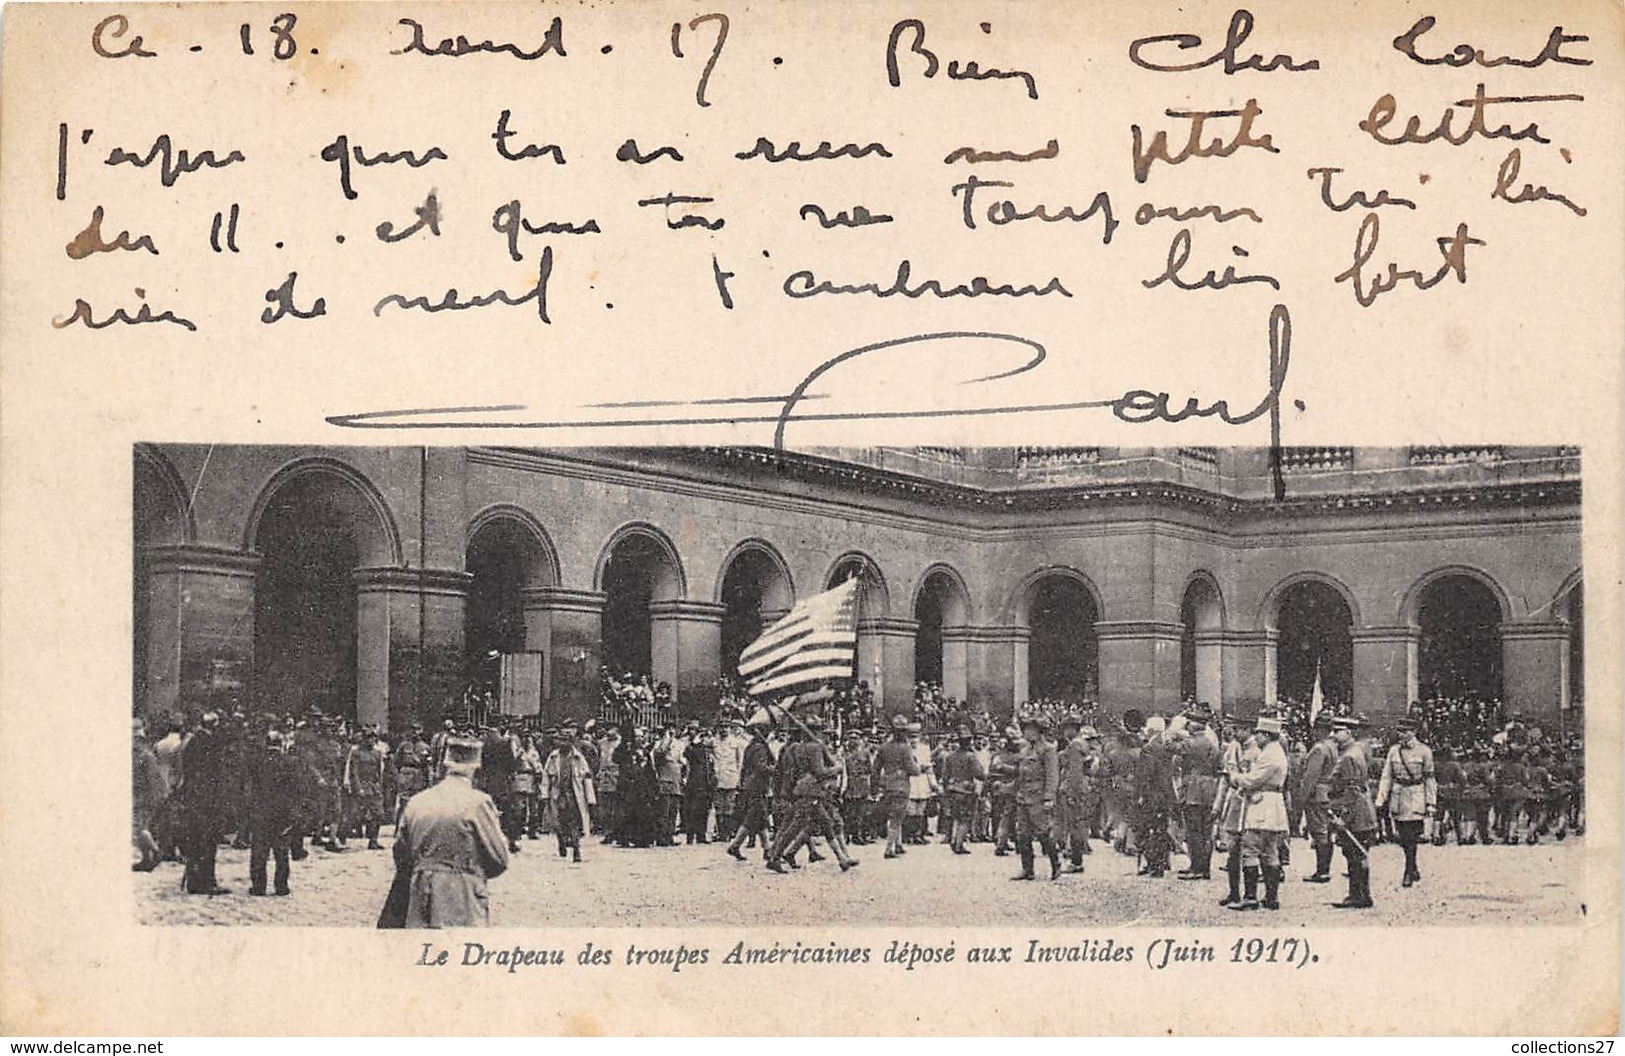 Ce. 18. aout. 17. Bien Cher
j'espere que tu as recu ma ptite lettre
du 11.. et que tu va toujours tres bien
rien de neuf. t'embrasse bien fort
Le Drapeau des troupes Américaines déposé aux Invalides (Juin 1917).
collections27